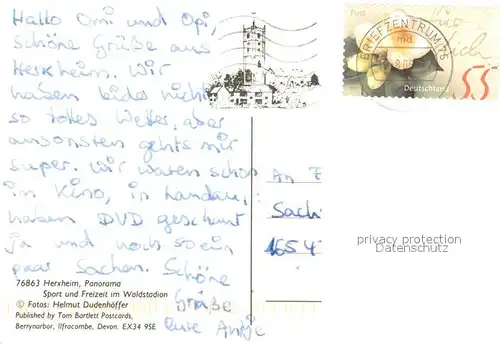 Hallo Omi und Opi,
schöne Grüße aus
Herxheim. Wir
haben leider nicht
so tolles Wetter, aber
ansonsten gehts mir
super. Wir waren schon
im Kino, in Landau,
haben DVD geschaut
ja und noch so ein
paar Sachen. Schöne
Grüße
eure Antje
76863 Herxheim, Panorama
Sport und Freizeit im Waldstadion
© Fotos: Helmut Dudenhöffer
Published by Tom Bartlett Postcards,
Berrynarbor, Ilfracombe, Devon. EX34 9SE
Post
BRIEFZENTRUM 76
md
Deutschland
55
An F
Sach
1654
privacy protection
Datenschutz